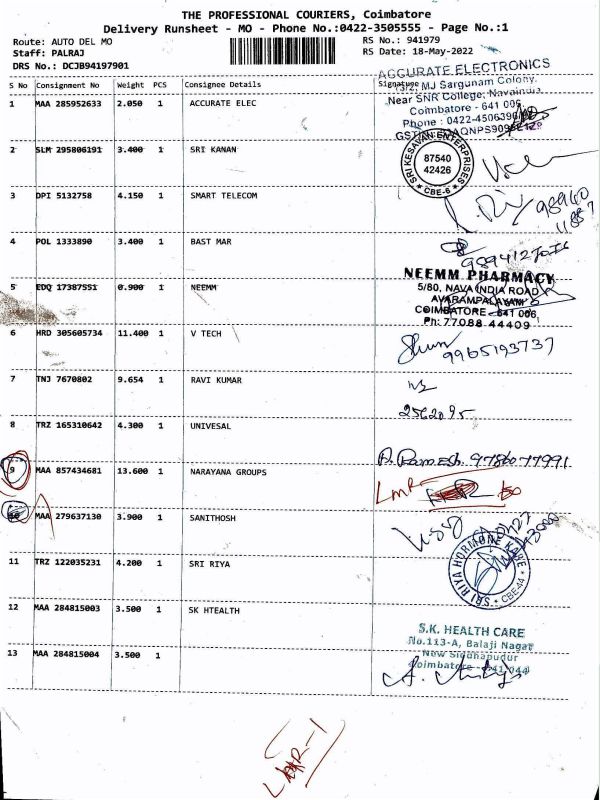 THE PROFESSIONAL COURIERS, Coimbatore
Delivery Runsheet - MO - Phone No.:0422-3505555 - Page No.:1
Route: AUTO DEL MO
RS No.: 941979
Staff: PALRAJ
RS Date: 18-May-2022
DRS No.: DCJB94197901
S No Consignment No Weight PCS Consignee Details Signature
ACCURATE ELECTRONICS
MJ Sargunam Colony,
Near SNR College, Navaindia
Coimbatore - 641 006
Phone : 0422-4506390
1 MAA 285952633 2.050 1 ACCURATE ELEC
2 SLM 295806191 3.400 1 SRI KANAN
SRI KESAVAN ENTERPRISES
87540
42426
CBE-6
3 DPI 5132758 4.150 1 SMART TELECOM
98940
4 POL 1333890 3.400 1 BAST MAR
NEEMM PHARMACY
5/80, NAVA INDIA ROAD
AVARAMPALAYAM
COIMBATORE - 641 006,
Ph: 77088 44409
5 EDQ 17387551 0.900 1 NEEMM
6 HRD 305605734 11.400 1 V TECH
9965193737
7 TNJ 7670802 9.654 1 RAVI KUMAR
8 TRZ 165310642 4.300 1 UNIVESAL
A. Ramesh. 9786077991
9 MAA 857434681 13.600 1 NARAYANA GROUPS
10 MAA 279637130 3.900 1 SANITHOSH
11 TRZ 122035231 4.200 1 SRI RIYA
SRI RIYA HORMONE KARE
CBE-44
12 MAA 284815003 3.500 1 SK HTEALTH
S.K. HEALTH CARE
No.113-A, Balaji Nagar
New Siddhapudur
Coimbatore - 641 044
13 MAA 284815004 3.500 1